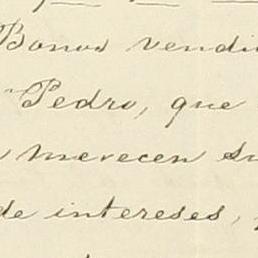 Bonos vendi
Pedro, que
merecen su
de intereses,